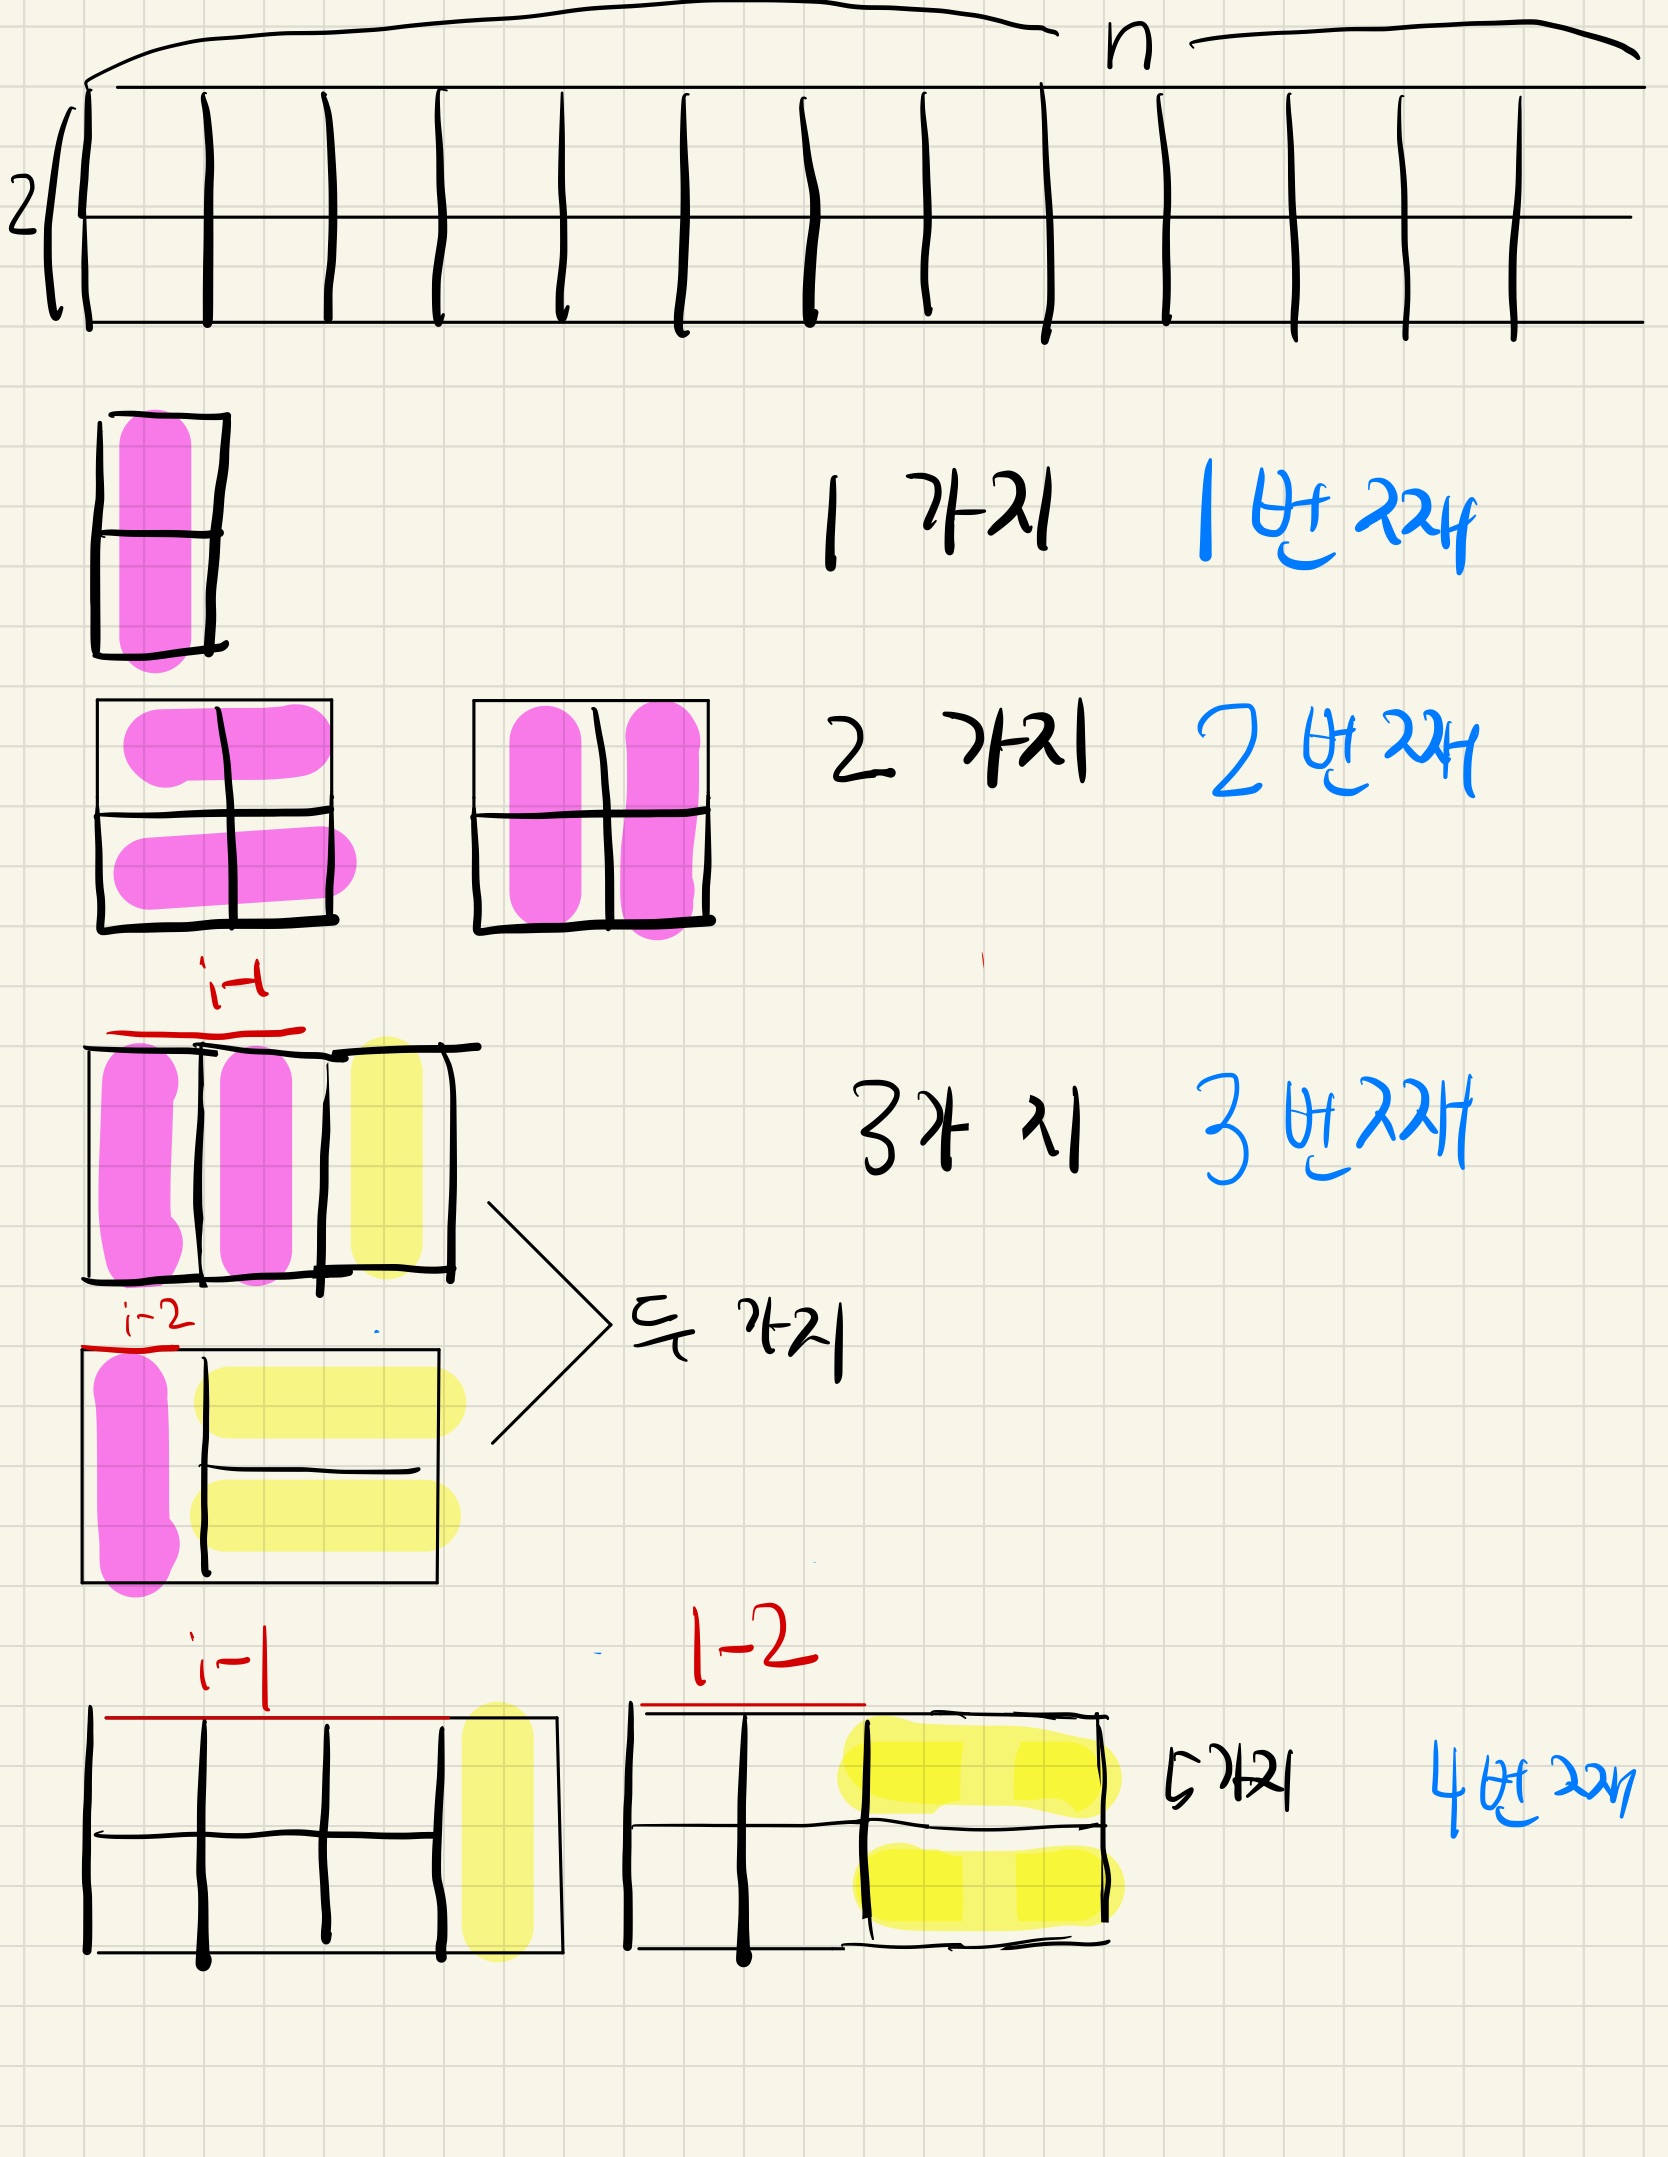 n
2
1 가지 1번째
2 가지 2번째
i-1
3가지 3번째
i-2
두 가지
i-1 1-2
5가지 4번째